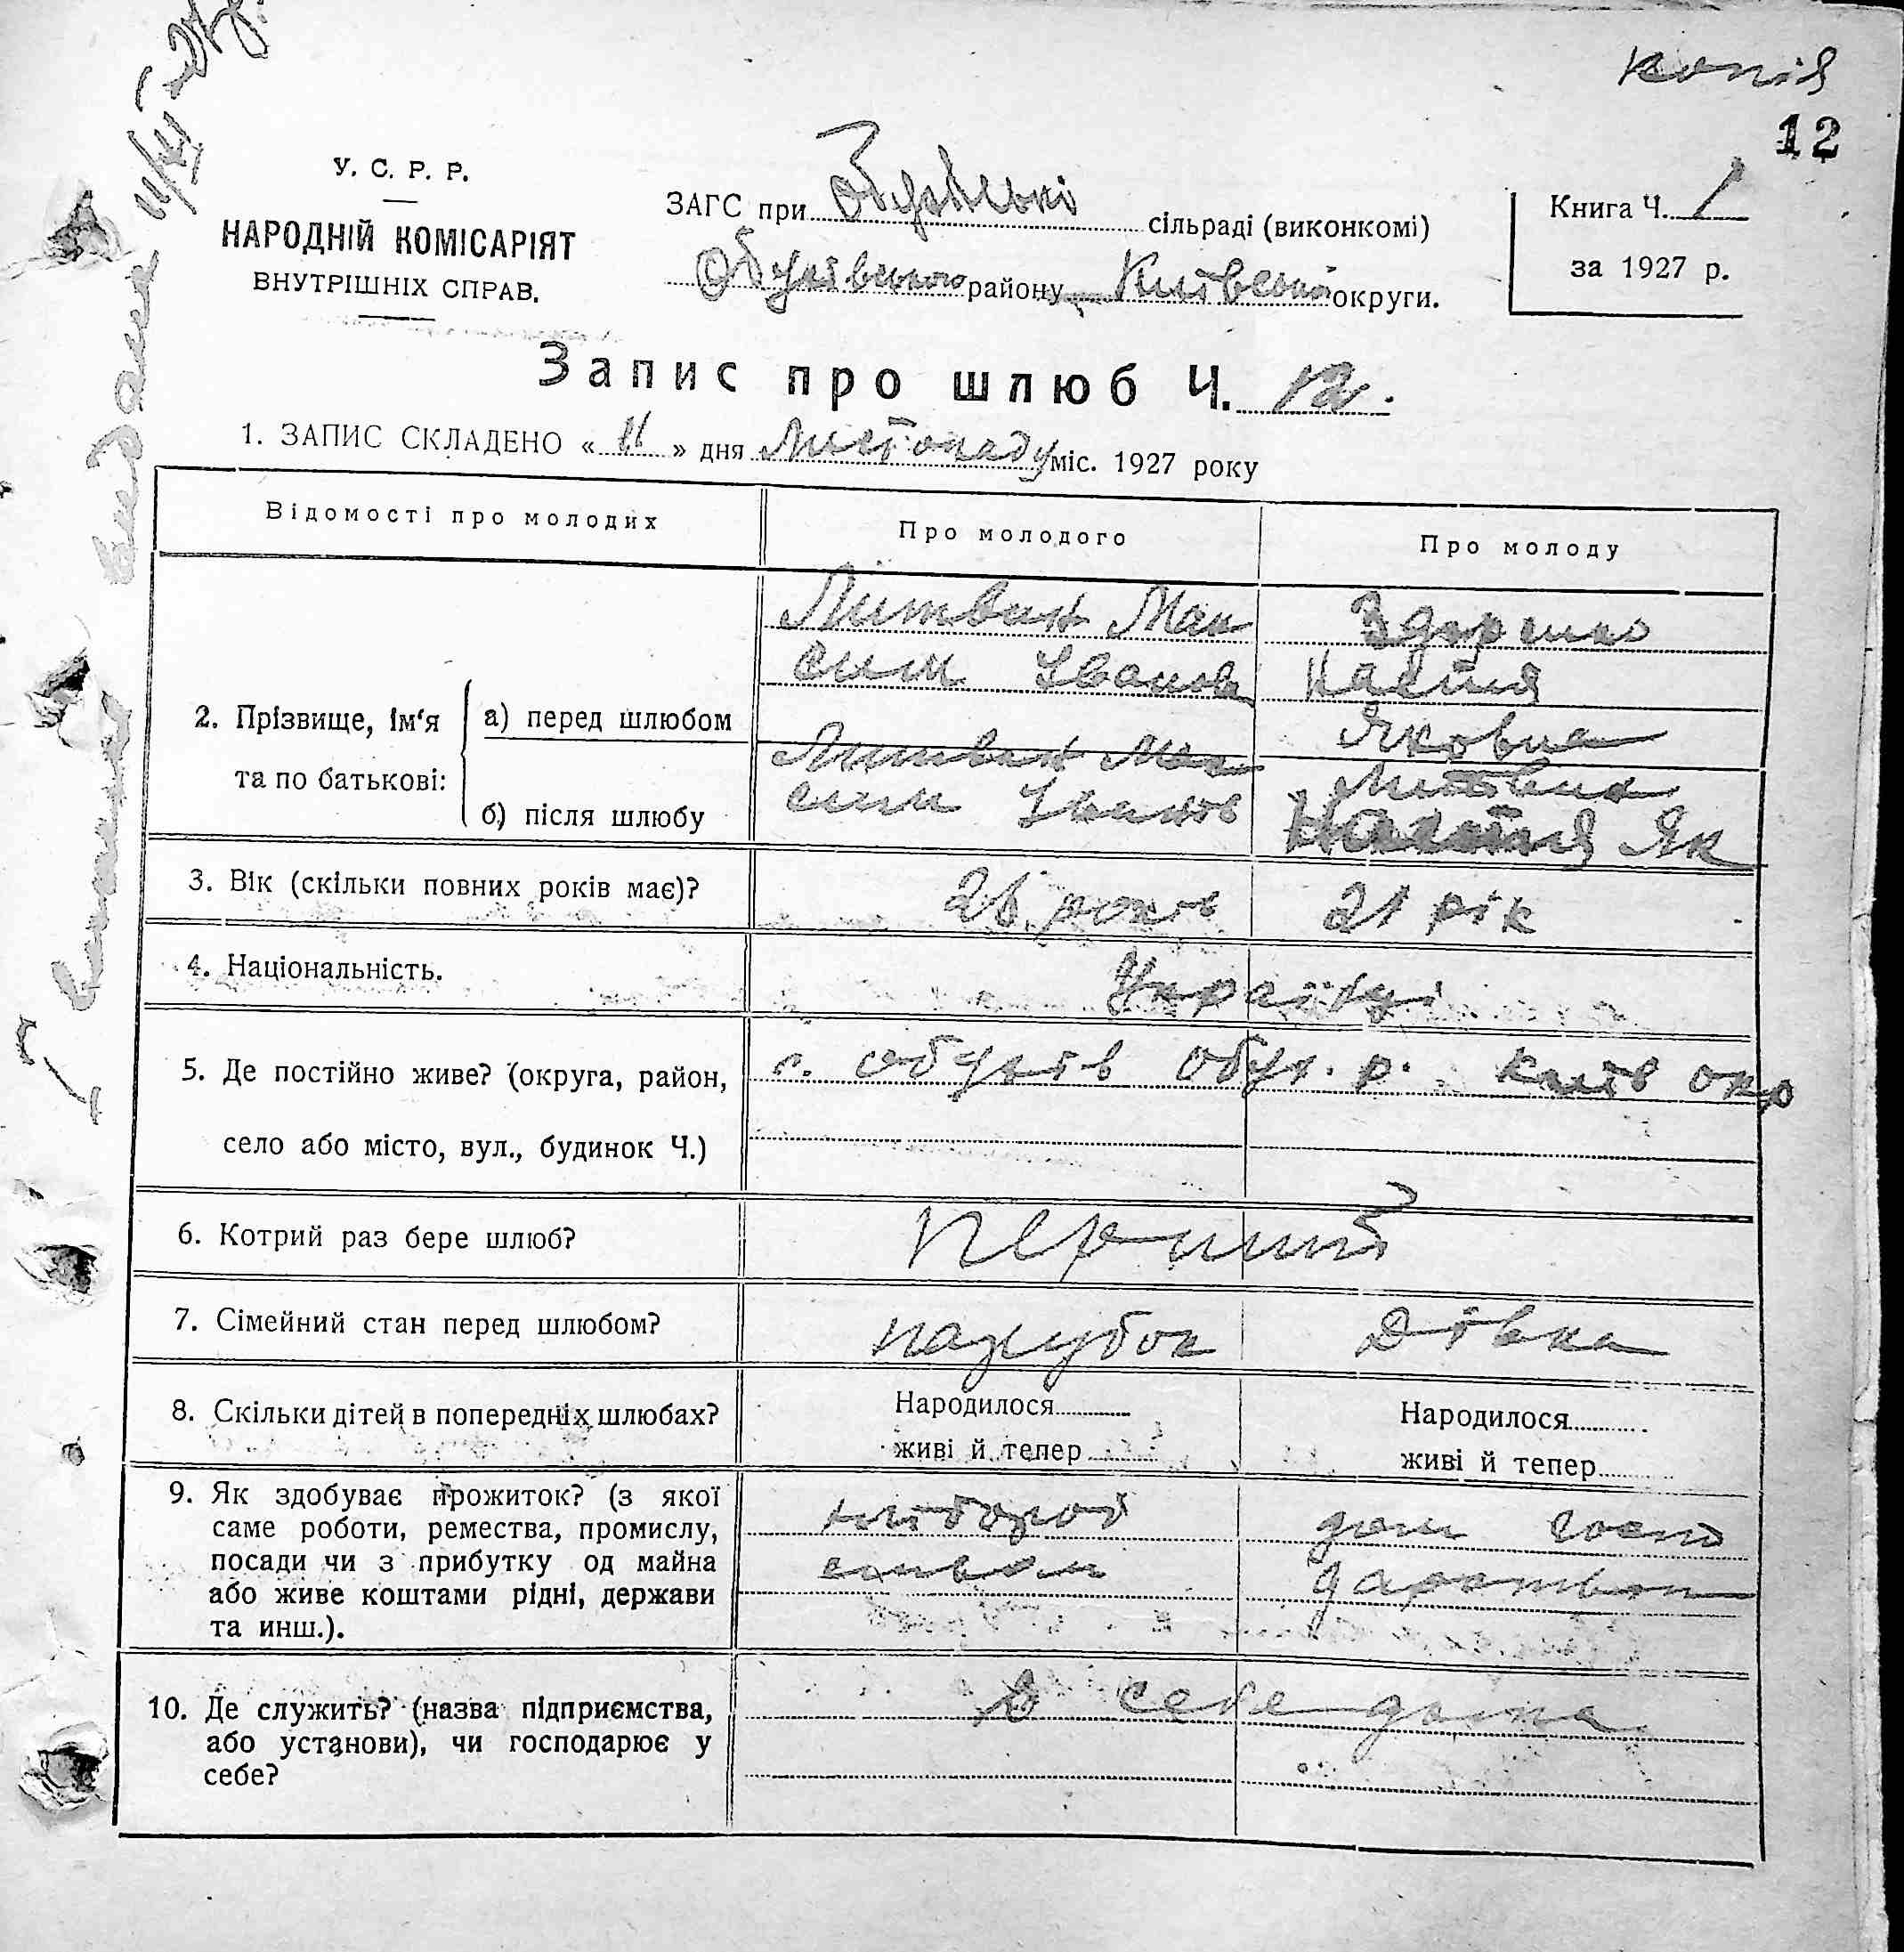 копія
12
У. С. Р. Р.
НАРОДНІЙ КОМІСАРІЯТ
ВНУТРІШНІХ СПРАВ.
ЗАГС при сільраді (виконкомі)
Обухівського району Київської округи.
Книга Ч. 1
за 1927 р.
Запис про шлюб Ч. 12.
1. ЗАПИС СКЛАДЕНО « 11 » дня Листопаду міс. 1927 року
Відомості про молодих
Про молодого
Про молоду
2. Прізвище, ім'я
та по батькові:
а) перед шлюбом
Литвин Мак
сим Іванов
Здоренко
Настя
Яковна
б) після шлюбу
Литвин Мак
сим Іванов
Литвин
Настя Як
3. Вік (скільки повних років має)?
років
21 рік
4. Національність.
Українці
5. Де постійно живе? (округа, район,
село або місто, вул., будинок Ч.)
с. Обухів Обух. р. Київ окр
6. Котрий раз бере шлюб?
Перший
7. Сімейний стан перед шлюбом?
парубок
Дівка
8. Скільки дітей в попередніх шлюбах?
Народилося
живі й тепер
Народилося
живі й тепер
9. Як здобуває прожиток? (з якої
саме роботи, ремества, промислу,
посади чи з прибутку од майна
або живе коштами рідні, держави
та инш.).
хлібороб
ством
дом госпо
дарством
10. Де служить? (назва підприємства,
або установи), чи господарює у
себе?
себе дома
видана